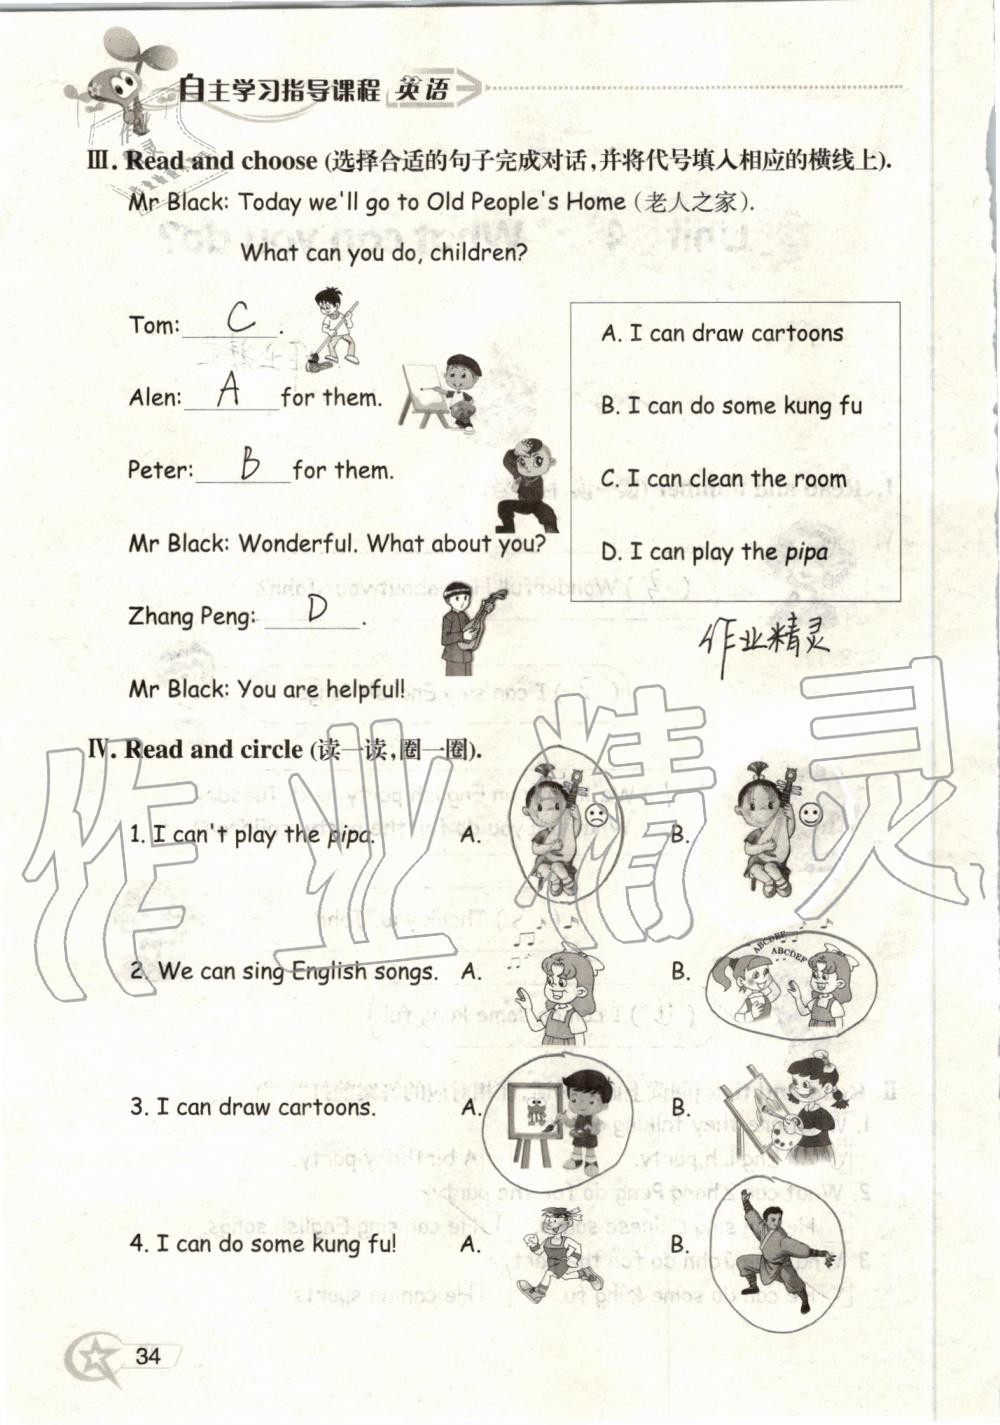 自主学习指导课程 英语
Ⅲ. Read and choose (选择合适的句子完成对话,并将代号填入相应的横线上).
Mr Black: Today we'll go to Old People's Home (老人之家).
What can you do, children?
Tom: C .
Alen: A for them.
Peter: B for them.
Mr Black: Wonderful. What about you?
Zhang Peng: D .
Mr Black: You are helpful!
A. I can draw cartoons
B. I can do some kung fu
C. I can clean the room
D. I can play the pipa
作业精灵
作业精灵
Ⅳ. Read and circle (读一读,圈一圈).
1. I can't play the pipa. A. B.
2. We can sing English songs. A. B.
ABCDEF
ABCDEF
3. I can draw cartoons. A. B.
4. I can do some kung fu! A. B.
34